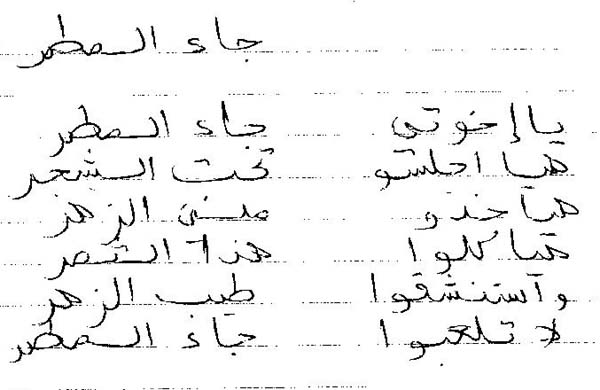 جاء المطر
يا إخوتي جاء المطر
هيا اجلسو تحت الشجر
هيا خذو منى الزهر
هيا كلوا هذا الثمر
واستنشقوا طيب الزهر
لا تلعبوا جاء المطر